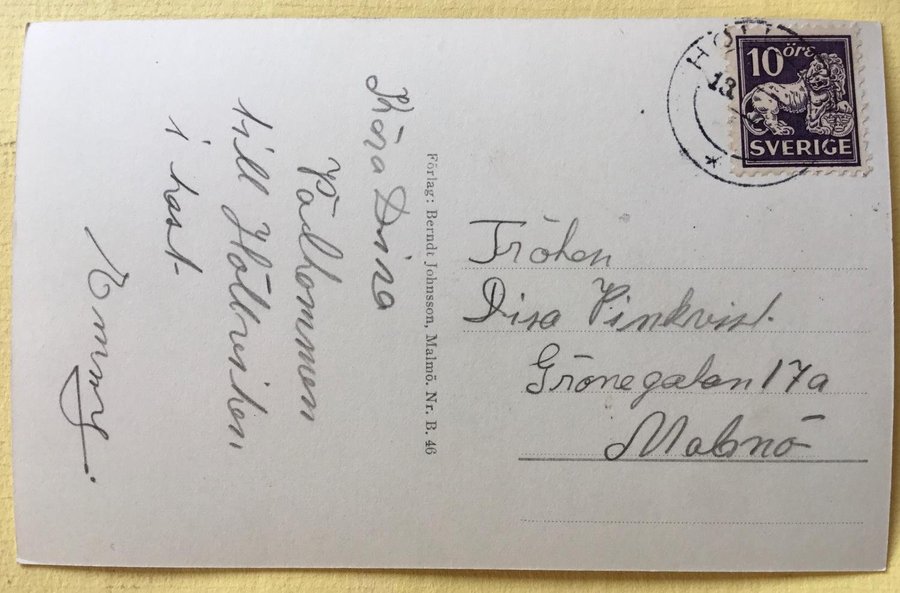 Kära Disa
Välkommen
till Höllviken
i hast
Emmy.
Förlag: Berndt Johnsson, Malmö. Nr. B. 46
HÖLL
13.
10 öre
SVERIGE
Fröken
Disa Vinkvist.
Grönegatan 17a
Malmö